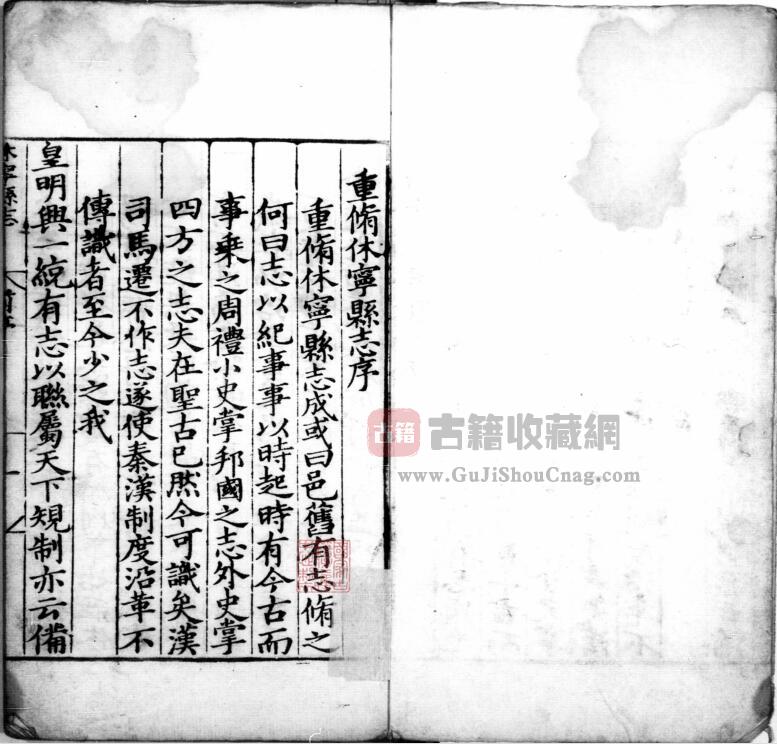 重脩休寧縣志序
重脩休寧縣志成或曰邑舊有志脩之
何曰志以紀事事以時起時有今古而
事乘之周禮小史掌邦國之志外史掌
四方之志夫在聖古已然今可識矣漢
司馬遷不作志遂使秦漢制度沿革不
傳識者至今少之我
皇明興一統有志以聯屬天下規制亦云備
休寧縣志
古籍
古籍收藏網
www.GuJiShouCnag.com